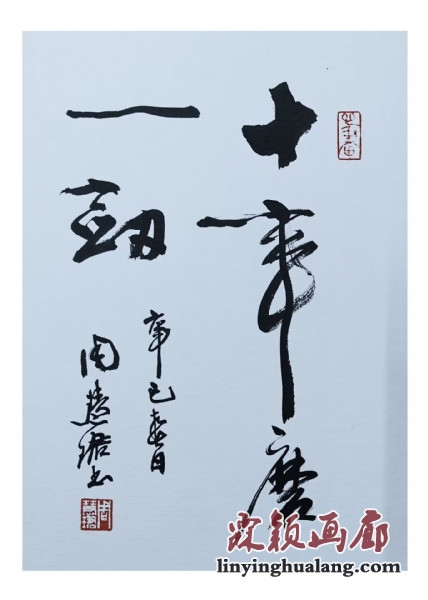 十年磨
一劒
辛巳春日
周慧珺书
霖颖画廊
linyinghualang.com